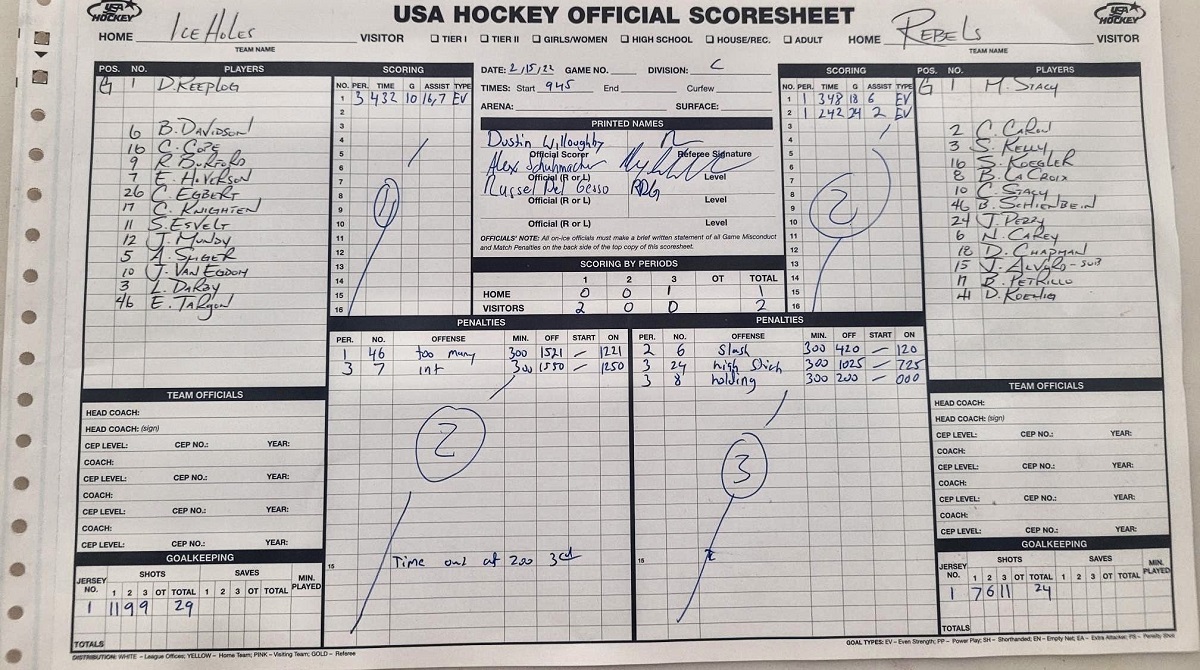 USA HOCKEY OFFICIAL SCORESHEET
USA HOCKEY
USA HOCKEY
HOME IceHoles VISITOR
TEAM NAME
☐ TIER I ☐ TIER II ☐ GIRLS/WOMEN ☐ HIGH SCHOOL ☐ HOUSE/REC. ☐ ADULT
HOME Rebels VISITOR
TEAM NAME
POS. NO. PLAYERS
G 1 D. KEEPLOG
6 B. DAVIDSON
16 C. COPE
9 R. BURFORD
7 E. HOVERSON
26 C. EGBERT
17 C. KNIGHTEN
11 S. ESVELT
12 J. MUNDY
5 A. SMGER
10 J. VAN EGDOM
3 L. DARBY
46 E. TARGON
SCORING
NO. PER. TIME G ASSIST TYPE
1 3 432 10 16,7 EV
2
3
4
5
6
7
8
9
10
11
12
13
14
15
16
1
DATE: 2/15/22 GAME NO. DIVISION: C
TIMES: Start 945 End Curfew
ARENA: SURFACE:
PRINTED NAMES
Dustin Willoughby
Official Scorer Referee Signature
Alex Schuhmacher
Official (R or L) Level
Russel Del Gesso RDG
Official (R or L) Level
Official (R or L) Level
OFFICIALS' NOTE: All on-ice officials must make a brief written statement of all Game Misconduct
and Match Penalties on the back side of the top copy of this scoresheet.
SCORING BY PERIODS
1 2 3 OT TOTAL
HOME 0 0 1 1
VISITORS 2 0 0 2
SCORING
NO. PER. TIME G ASSIST TYPE
1 1 348 18 6 EV
2 1 242 24 2 EV
3
4
5
6
7
8
9
10
11
12
13
14
15
16
2
POS. NO. PLAYERS
G 1 M. STACY
2 C. CARON
3 S. KELLY
16 S. KOEGLER
8 B. LACROIX
10 C. STACY
46 B. SCHIENBEIN
24 J. PERRY
6 N. CAREY
18 D. CHAPMAN
15 J. ALVARO - SUB
17 B. PETRILLO
41 D. KOENIG
PENALTIES
PER. NO. OFFENSE MIN. OFF START ON
1 46 too many 300 1521 — 1221
3 7 int 300 1550 — 1250
2
15
Time out at 200 3rd
PENALTIES
PER. NO. OFFENSE MIN. OFF START ON
2 6 Slash 300 420 — 120
3 24 high stick 300 1025 — 725
3 8 holding 300 200 — 000
3
15
TEAM OFFICIALS
HEAD COACH:
HEAD COACH: (sign)
CEP LEVEL: CEP NO.: YEAR:
COACH:
CEP LEVEL: CEP NO.: YEAR:
COACH:
CEP LEVEL: CEP NO.: YEAR:
COACH:
CEP LEVEL: CEP NO.: YEAR:
GOALKEEPING
JERSEY NO. SHOTS SAVES MIN. PLAYED
1 2 3 OT TOTAL 1 2 3 OT TOTAL
1 11 9 9 29
TOTALS
TEAM OFFICIALS
HEAD COACH:
HEAD COACH: (sign)
CEP LEVEL: CEP NO.: YEAR:
COACH:
CEP LEVEL: CEP NO.: YEAR:
COACH:
CEP LEVEL: CEP NO.: YEAR:
COACH:
CEP LEVEL: CEP NO.: YEAR:
GOALKEEPING
JERSEY NO. SHOTS SAVES MIN. PLAYED
1 2 3 OT TOTAL 1 2 3 OT TOTAL
1 7 6 11 24
TOTALS
DISTRIBUTION: WHITE – League Offices; YELLOW – Home Team; PINK – Visiting Team; GOLD – Referee
GOAL TYPES: EV – Even Strength; PP – Power Play; SH – Shorthanded; EN – Empty Net; EA – Extra Attacker; PS – Penalty Shot